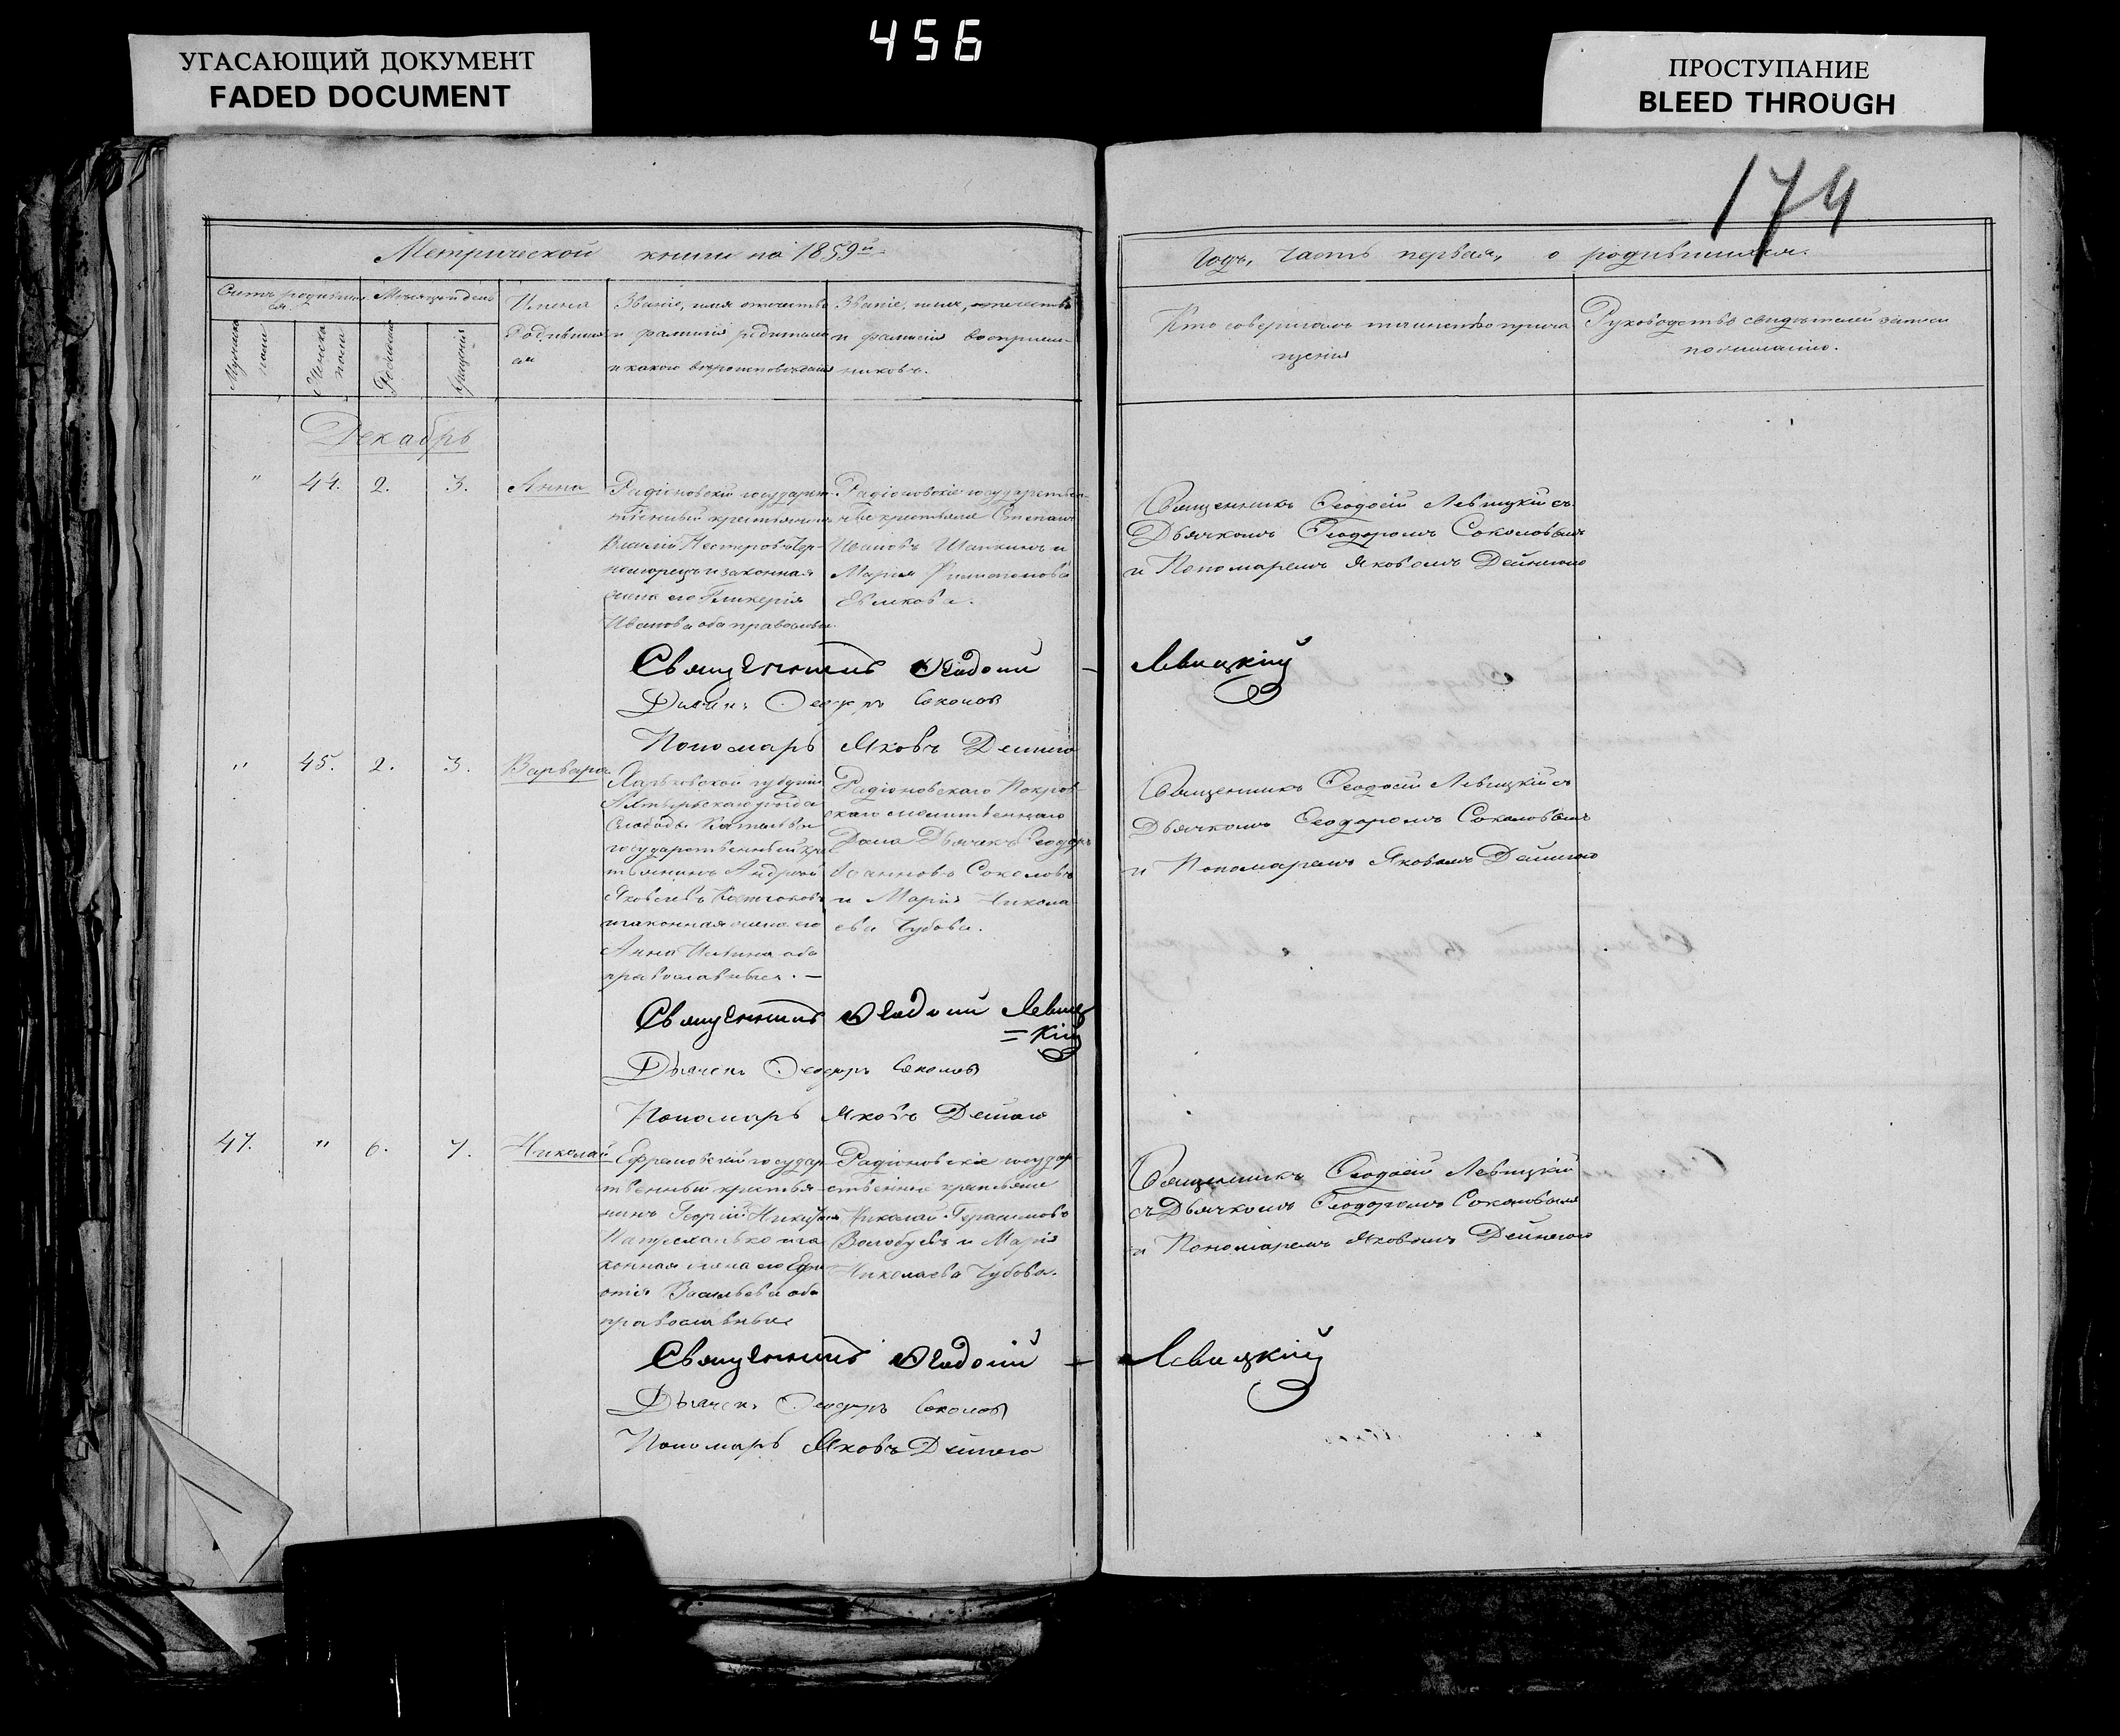 456
УГАСАЮЩИЙ ДОКУМЕНТ
FADED DOCUMENT
ПРОСТУПАНИЕ
BLEED THROUGH
174
Метрической книги на 1859й
Годъ, часть первая, о родившихся.
Счетъ родивших
ся.
Мѣсяцъ и день
Имена
Родивших
ся
Мужеска
пола
Женска
пола
Рожденія
Крещенія
Званіе, имя отчество
и фамилія родителей
и какого вѣроисповѣданія
Званіе, имя, отчество
и фамилія воспріем-
никовъ.
Кто совершалъ таинство
щенія
Рукоприкладство свидѣтелей записи
по желанію.
Декабрь
" 44. 2. 3. Анна
Радіоновскій государст-
венный крестьянинъ
Василій Нестеровъ Чер-
номорецъ и законная
жена его Гликерія
Иванова оба православн.
Радіоновскіе государствен-
ные крестьяне Степанъ
Ивановъ Шапкинъ и
Марія Филимонова
Священникъ Ѳеодосій Левицкій съ
Дьячкомъ Ѳеодоромъ Соколовымъ
и Пономаремъ Яковомъ Дейнегою
Священникъ Ѳеодосій — Левицкій
Дьячекъ Ѳеодоръ Соколов
Пономарь Яковъ Дейнега
" 45. 2. 3. Варвара
Харьковской губерніи
Ахтырскаго уѣзда
Слободы Котельвы
государственный крес
тьянинъ Андрей
Яковлевъ
и законная жена его
Анна Ильина оба
православные. —
Радіоновскаго Покров-
скаго молитвеннаго
Дома Дьячекъ Ѳеодоръ
Іоанновъ Соколовъ
и Марія Никола
ева Чубова.
Священникъ Ѳеодосій Левицкій съ
Дьячкомъ Ѳеодоромъ Соколовымъ
и Пономаремъ Яковомъ Дейнегою
Священникъ Ѳеодосій Левиц
=кій
Дьячекъ Ѳеодоръ Соколов
Пономарь Яковъ Дейнега
47. " 6. 7. Николай
Ефремовскій государ-
ственный крестья-
нинъ Георгій Никитинъ
и за
конная жена его Евфи
Васильева оба
православные
Радіоновскіе государ-
ственные крестьяне
Николай Герасимовъ
Волобуевъ и Марія
Николаева Чубова.
Священникъ Ѳеодосій Левицкій
съ Дьячкомъ Ѳеодоромъ Соколовымъ
и Пономаремъ Яковомъ Дейнегою
Священникъ Ѳеодосій — Левицкій
Дьячекъ Ѳеодоръ Соколов
Пономарь Яковъ Дейнега